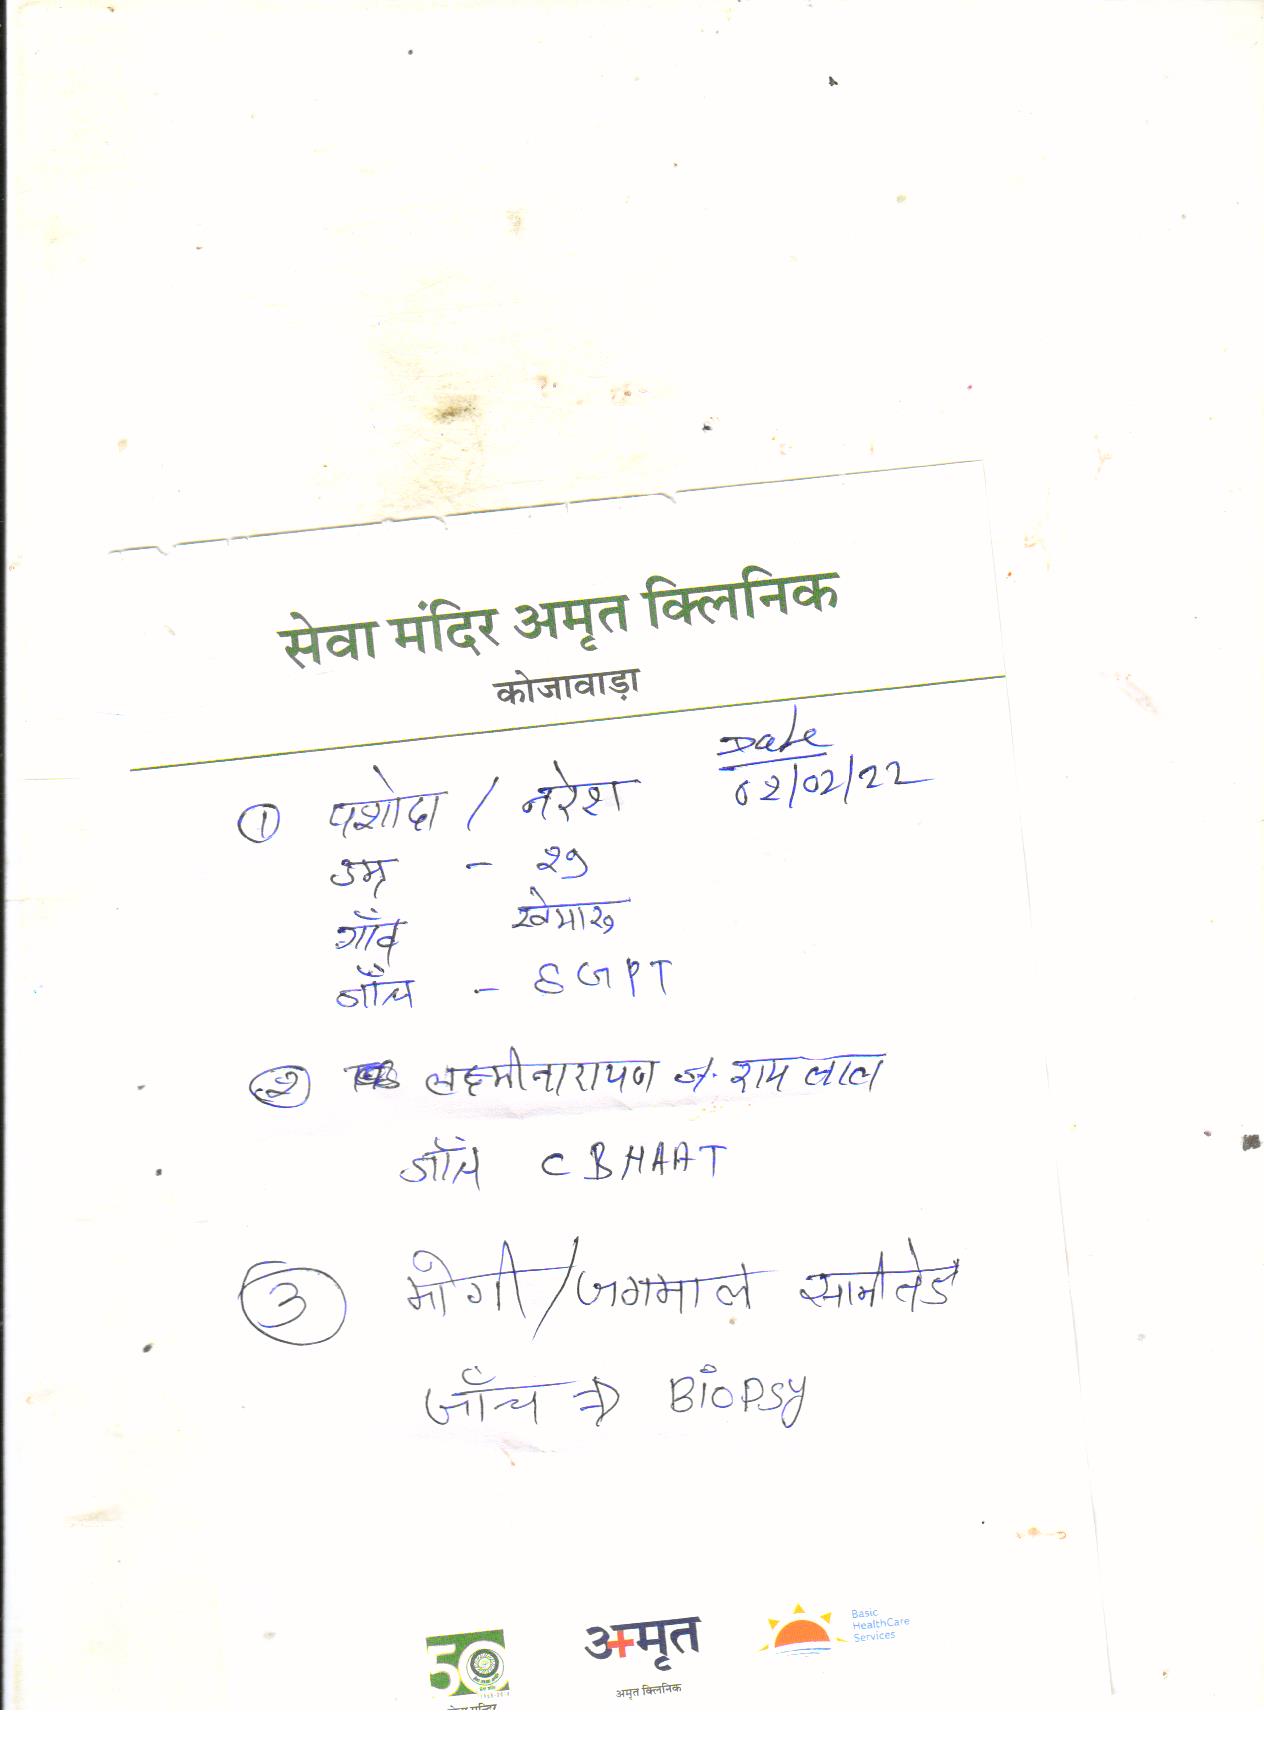 सेवा मंदिर अमृत क्लिनिक
कोजावाड़ा
Date
02/02/22
① यशोदा / नरेश
उम्र - २७
गाँव
जाँच - SGPT
② लक्ष्मीनारायण s. राम लाल
जाँच CBNAAT
③ मोगी / जगमाल
जाँच ⇒ BiOPSY
50
अमृत
अमृत क्लिनिक
Basic
HealthCare
Services